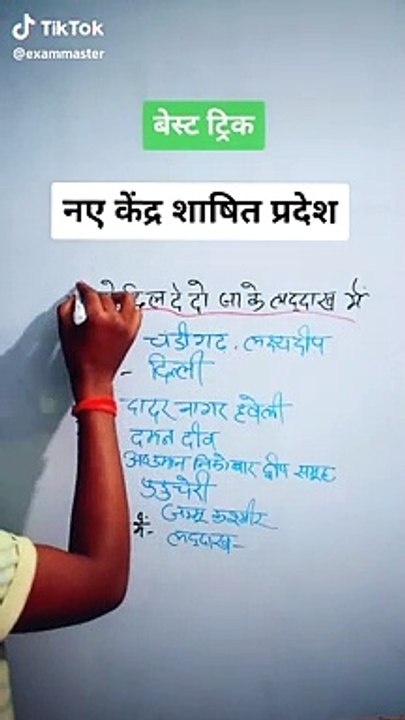 TikTok
@exammaster
बेस्ट ट्रिक
नए केंद्र शाषित प्रदेश
दिल दे दो जा के लद्दाख में
चडीगढ . लक्ष्यद्वीप
- दिल्ली
दादर नागर हवेली
दमन दीव
अण्डमान निकोबार द्वीप समूह
पुदुचेरी
जम्मू कश्मीर
में - लद्दाख -